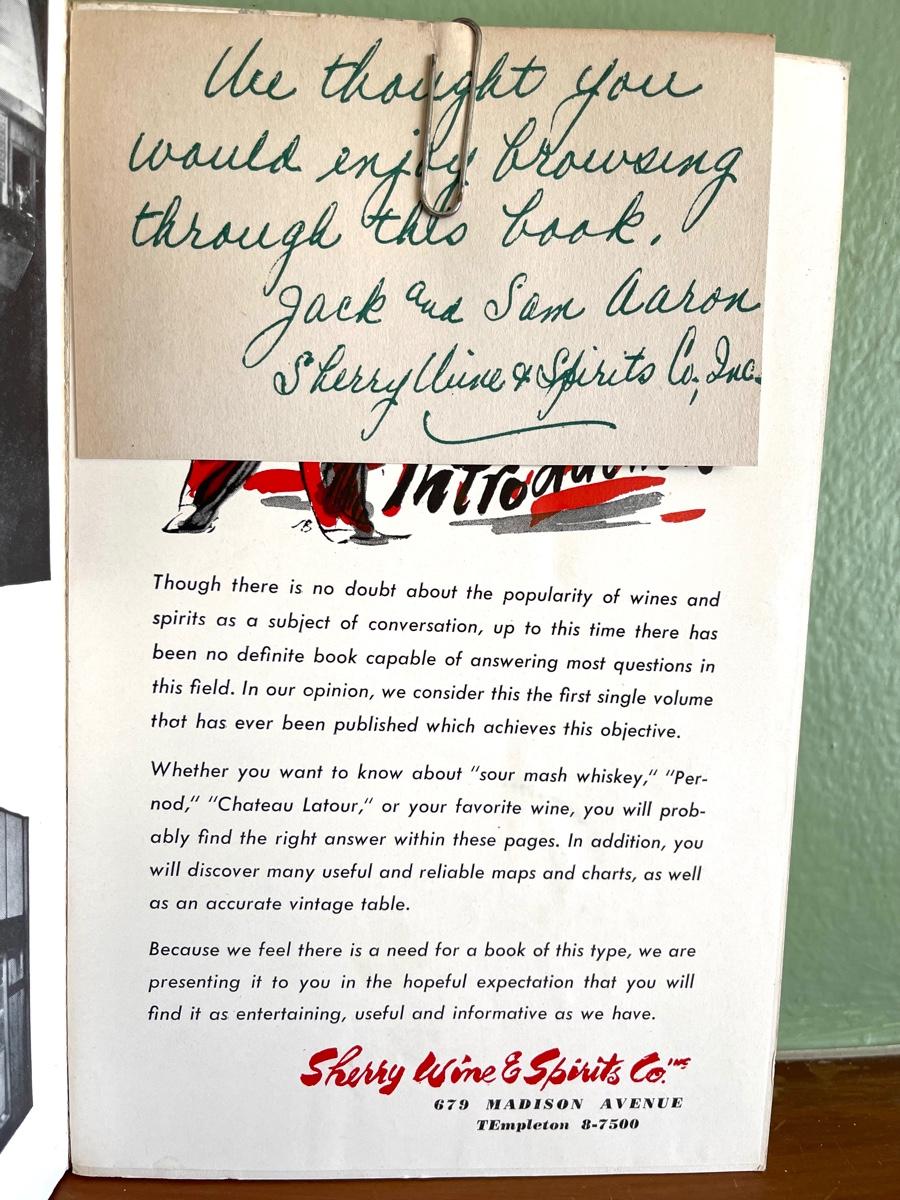 We thought you
would enjoy browsing
through this book.
Jack and Sam Aaron
Sherry Wine & Spirits Co., Inc.
Introduction
SB
Though there is no doubt about the popularity of wines and
spirits as a subject of conversation, up to this time there has
been no definite book capable of answering most questions in
this field. In our opinion, we consider this the first single volume
that has ever been published which achieves this objective.
Whether you want to know about "sour mash whiskey," "Per-
nod," "Chateau Latour," or your favorite wine, you will prob-
ably find the right answer within these pages. In addition, you
will discover many useful and reliable maps and charts, as well
as an accurate vintage table.
Because we feel there is a need for a book of this type, we are
presenting it to you in the hopeful expectation that you will
find it as entertaining, useful and informative as we have.
Sherry Wine & Spirits Co. INC
679 MADISON AVENUE
TEmpleton 8-7500